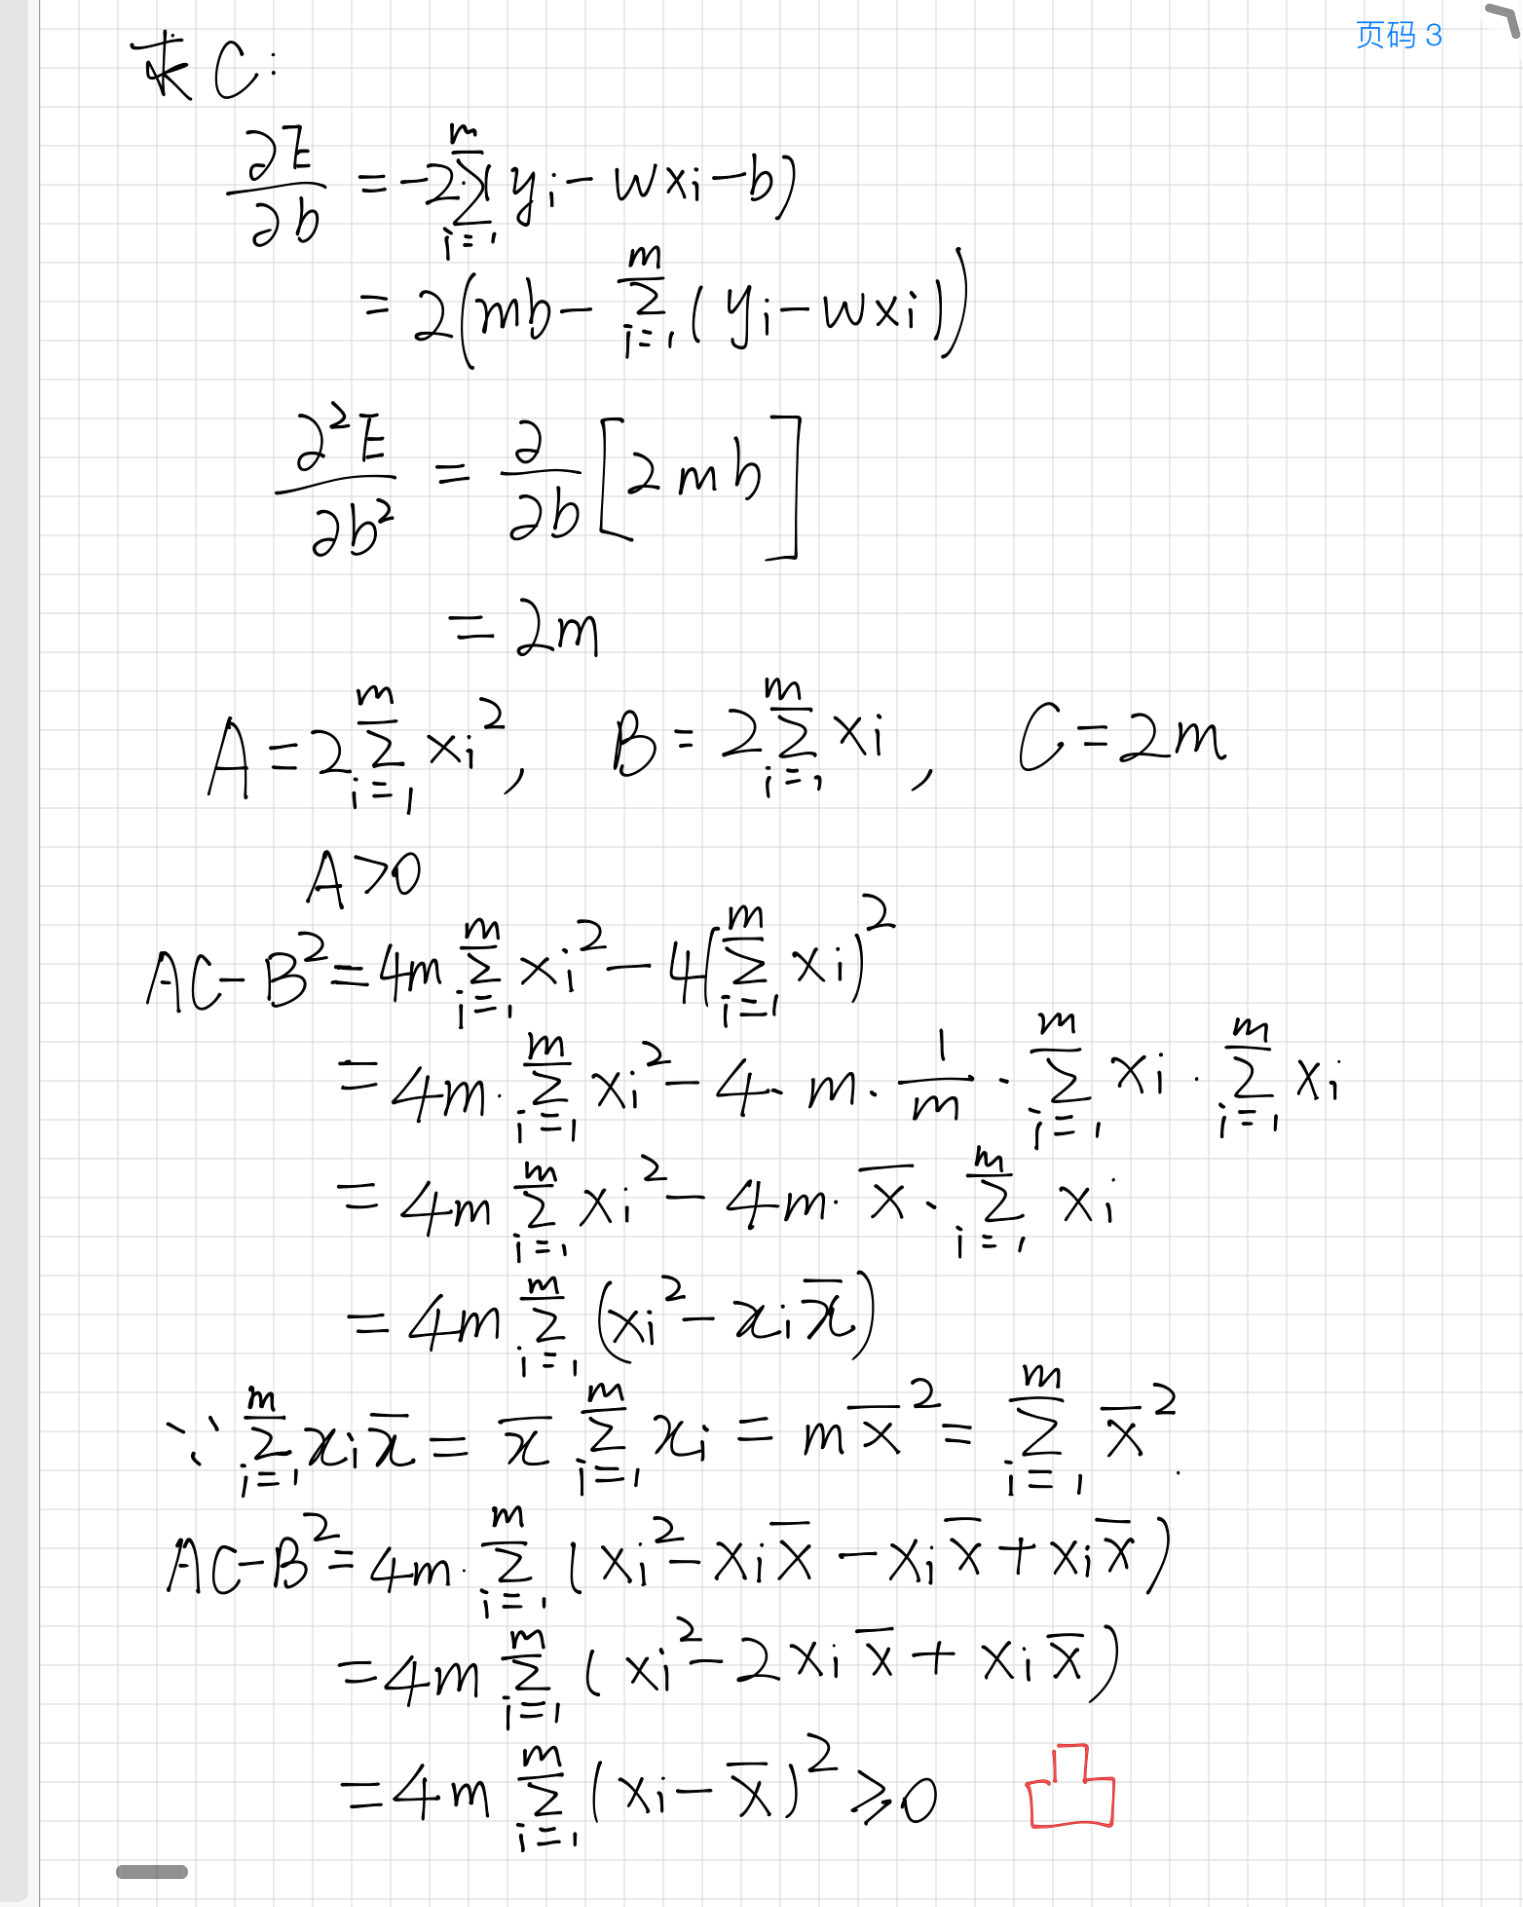 页码 3
求 C:
∂E/∂b = -2∑_{i=1}^{m}(y_i - wx_i - b)
= 2(mb - ∑_{i=1}^{m}(y_i - wx_i))
∂²E/∂b² = ∂/∂b [2mb]
= 2m
A = 2∑_{i=1}^{m} x_i², B = 2∑_{i=1}^{m} x_i, C = 2m
A > 0
AC - B² = 4m∑_{i=1}^{m} x_i² - 4(∑_{i=1}^{m} x_i)²
= 4m·∑_{i=1}^{m} x_i² - 4·m·1/m·∑_{i=1}^{m} x_i·∑_{i=1}^{m} x_i
= 4m∑_{i=1}^{m} x_i² - 4m·x̄·∑_{i=1}^{m} x_i
= 4m∑_{i=1}^{m}(x_i² - x_i x̄)
∵ ∑_{i=1}^{m} x_i x̄ = x̄∑_{i=1}^{m} x_i = m x̄² = ∑_{i=1}^{m} x̄².
AC - B² = 4m·∑_{i=1}^{m}(x_i² - x_i x̄ - x_i x̄ + x_i x̄)
= 4m∑_{i=1}^{m}(x_i² - 2x_i x̄ + x_i x̄)
= 4m∑_{i=1}^{m}(x_i - x̄)² ≥ 0